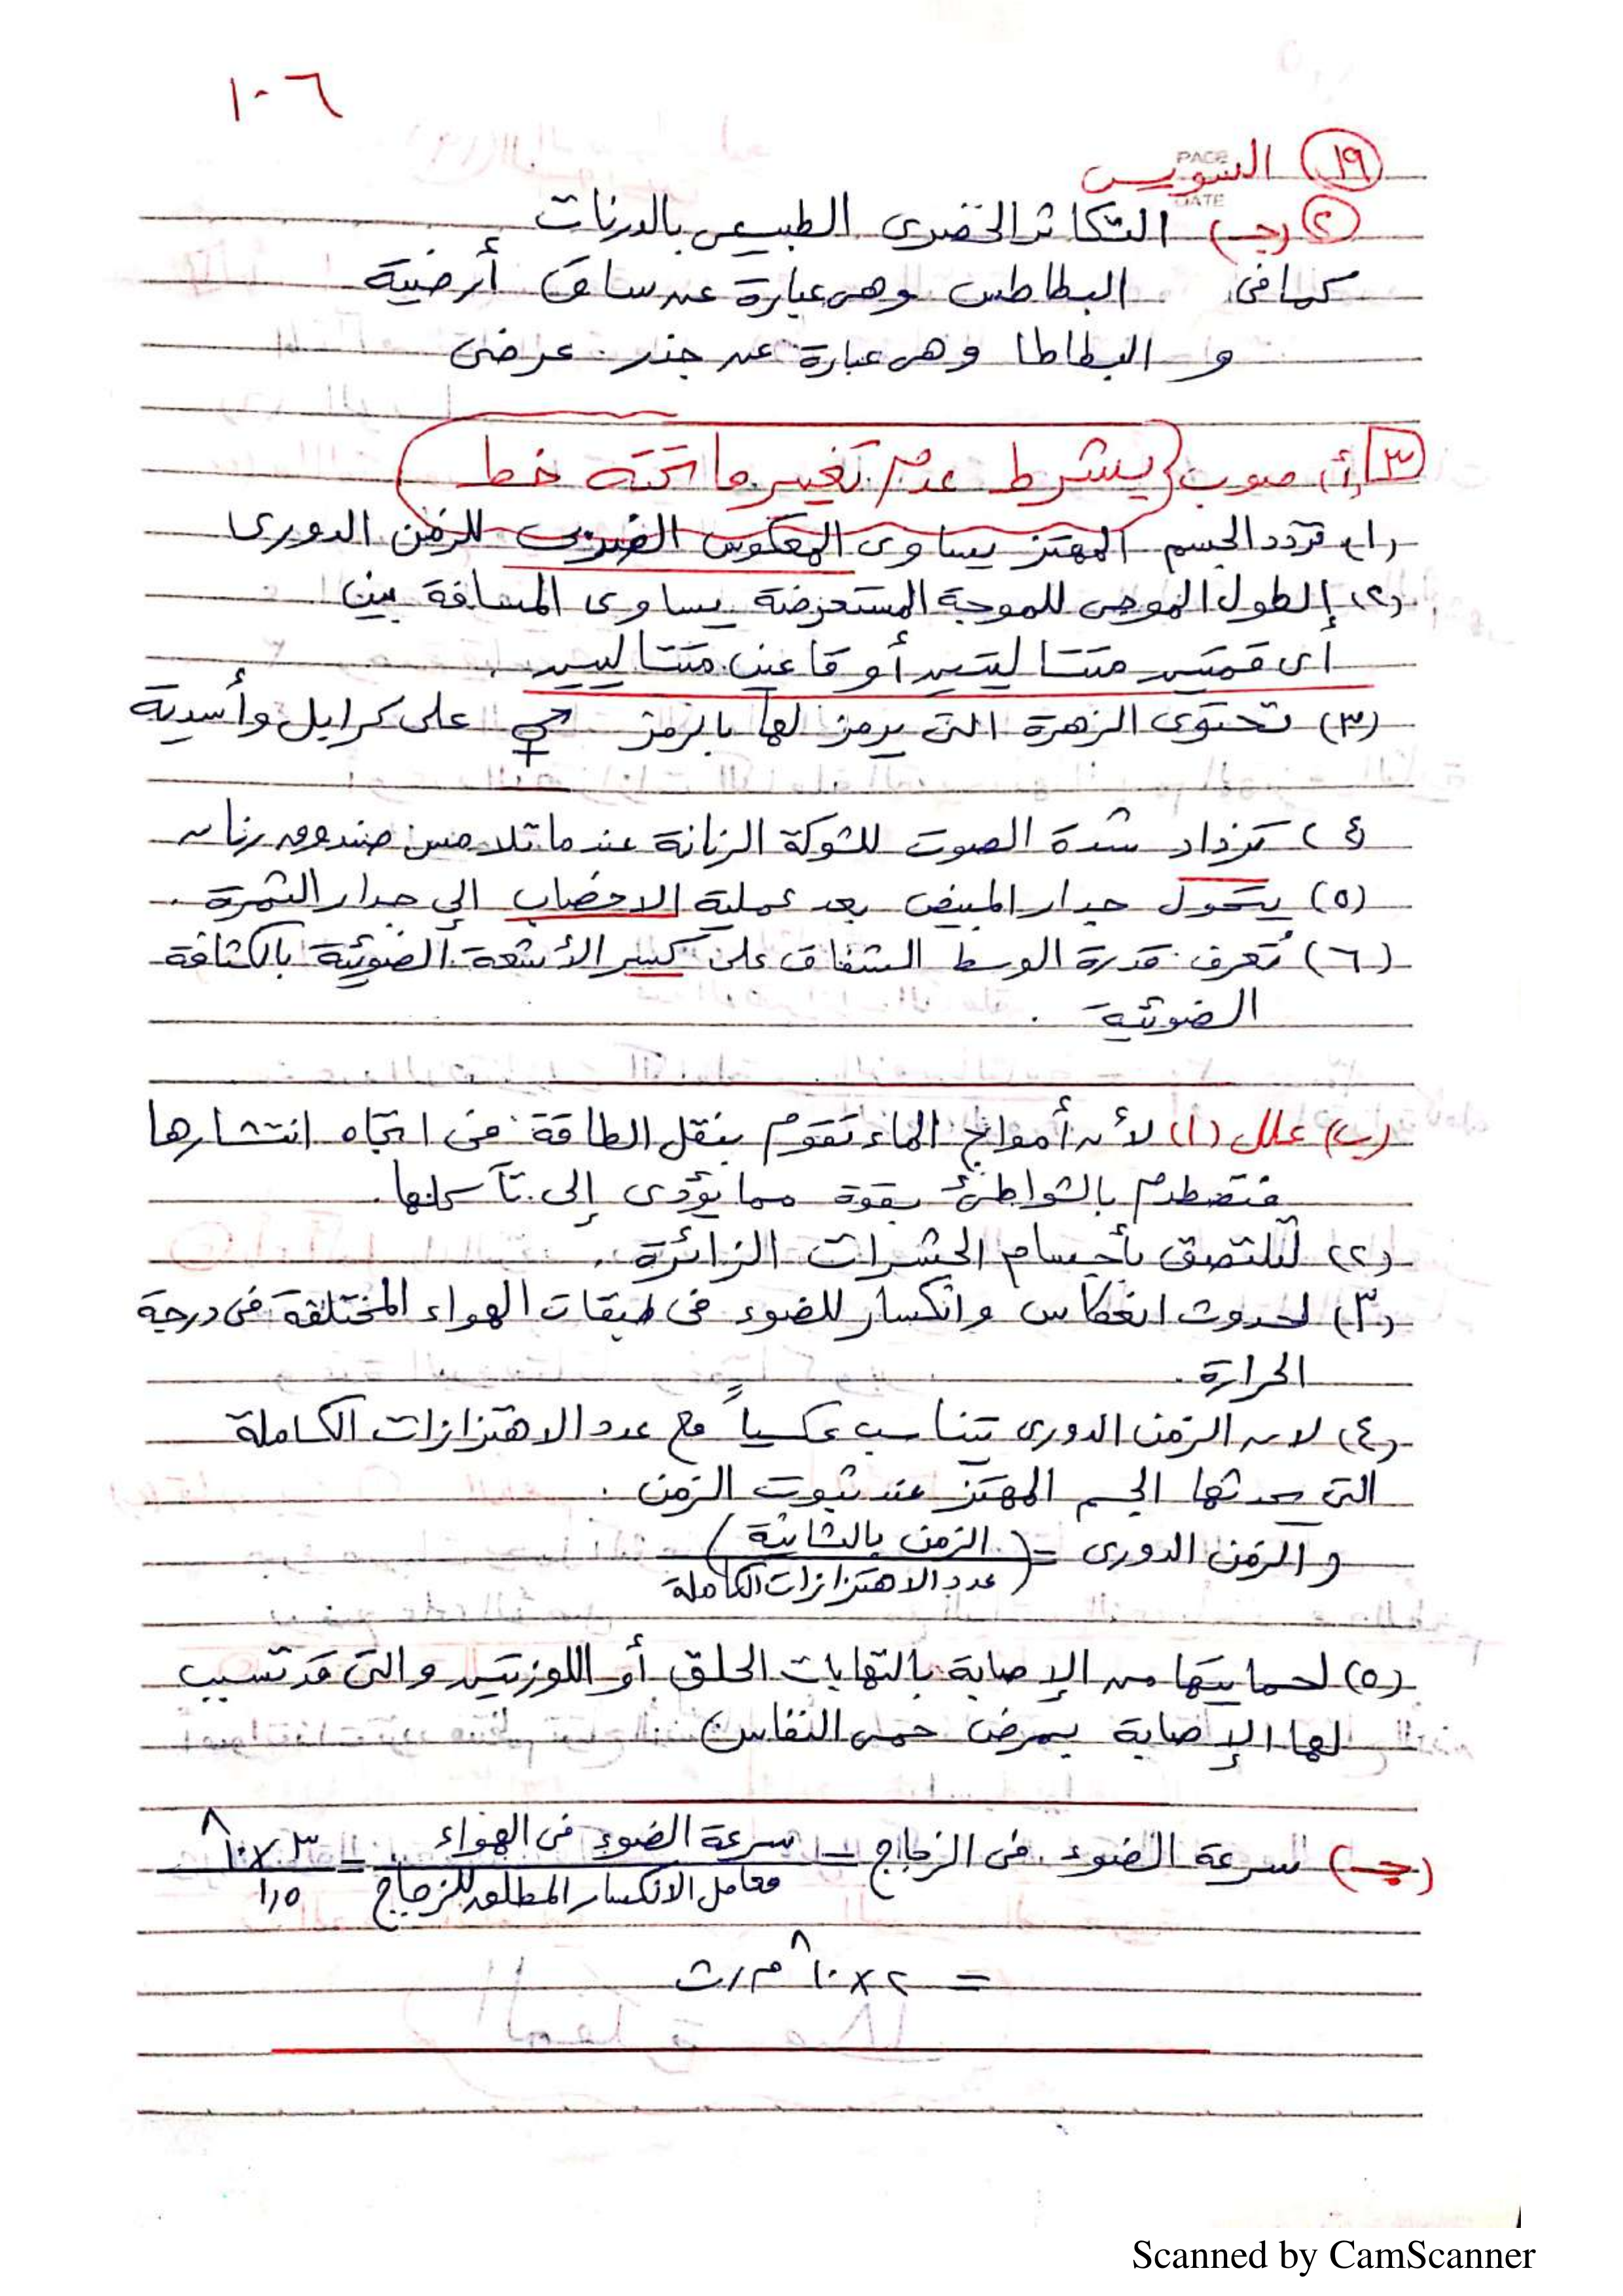 ١٠٦
PAGE
١٩ السويس
DATE
٢ (جـ) التكاثر الخضرى الطبيعى بالدرنات
كما فى البطاطس وهى عبارة عن ساق أرضية
و البطاطا وهى عبارة عن جذر عرضى
٣ أ) صوب (يشرط عدم تغيير ما تحته خط)
(١) تردد الجسم المهتز يساوى المعكوس الضربى للزمن الدورى
(٢) الطول الموجى للموجة المستعرضة يساوى المسافة بين
أى قمتين متتاليتين أو قاعين متتاليين
(٣) تحتوى الزهرة التى يرمز لها بالرمز ⚥ على كرابل وأسدية
(٤) تزداد شدة الصوت للشوكة الرنانة عندما تلامس صندوق رنان
(٥) يتحول جدار المبيض بعد عملية الاخصاب إلى جدار الثمرة .
(٦) تُعرف قدرة الوسط الشفاف على كسر الأشعة الضوئية بالكثافة
الضوئية .
(ب) علل (١) لأن أمواج الماء تقوم بنقل الطاقة فى اتجاه انتشارها
فتصطدم بالشواطئ بقوة مما يؤدى إلى تآكلها .
(٢) لتلتصق بأجسام الحشرات الزائرة .
(٣) لحدوث انعكاس وانكسار للضوء فى طبقات الهواء المختلفة فى درجة
الحرارة .
(٤) لان الزمن الدورى يتناسب عكسياً مع عدد الاهتزازات الكاملة
التى يحدثها الجسم المهتز عند ثبوت الزمن .
و الزمن الدورى = (الزمن بالثانية)
(عدد الاهتزازات الكاملة
(٥) لحمايتها من الإصابة بالتهابات الحلق أو اللوزتين والتى قد تسبب
لها الإصابة بمرض حمى النفاس
(جـ) سرعة الضوء فى الزجاج = سرعة الضوء فى الهواء = ٣ × ١٠^٨
معامل الانكسار المطلق للزجاج ١,٥
= ٢ × ١٠^٨ م/ث
Scanned by CamScanner